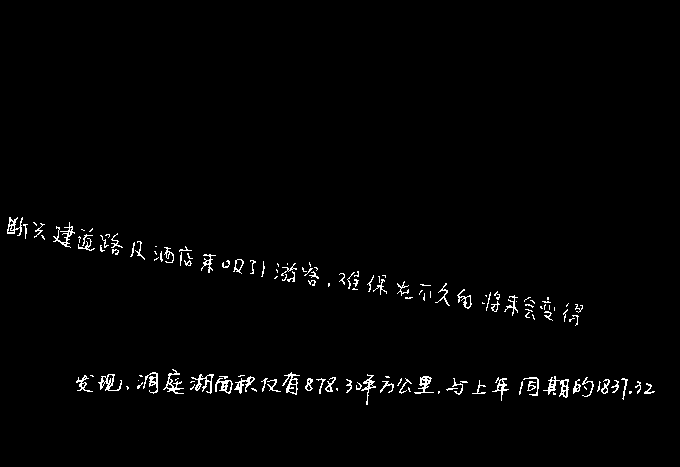 断兴建道路及酒店来吸引游客,难保在不久的将来会变得
发现,洞庭湖面积仅有878.30平方公里,与上年同期的1837.32